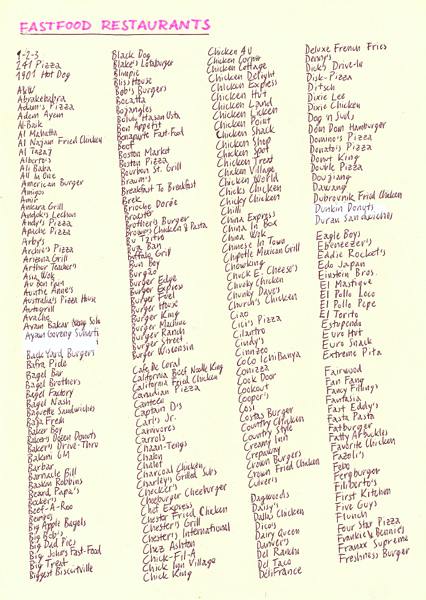 FASTFOOD RESTAURANTS
1-2-3
241 Pizza
1401 Hot Dog
A&W
Abrakebabra
Adam's Pizza
Adem Ayem
Al-Baik
Al Mahatta
Al Najam Fried Chicken
Al Tazaj
Alberto's
Ali Baba
All in One
American Burger
Amigo
Amir
Ankara Grill
Andok's Lechon
Andy's Pizza
Apache Pizza
Arby's
Archie's Pizza
Arizona Grill
Arthur Treacher's
Asia Wok
Au Bon Pain
Auntie Anne's
Australia's Pizza House
Autogrill
Avacha
Ayam Bakar Wong Solo
Ayam Goreng Suharti
Back Yard Burgers
Bafra Pide
Bagel Bar
Bagel Brothers
Bagel Factory
Bagel Nash
Bagvette Sandwiches
Baja Fresh
Baker Boy
Baker's Dozen Donuts
Baker's Drive-Thru
Bakmi GM
Barbar
Barnacle Bill
Baskin Robbins
Beard Papa's
Becker's
Beef-A-Roo
Benjys
Big Apple Bagels
Big Bob's
Big Dad Pies
Big John's Fast-Food
Big Treat
Biggest Biscuitville
Black Dog
Blake's Lotaburger
Blimpie
Bliss House
Bob's Burgers
Bocatta
Bojangles
Bon Appetit
Bonaparte Fast-Food
Boef
Boston Market
Boston Pizza
Bourbon St. Grill
Braum's
Breakfast To Breakfast
Brek
Brioche Dorée
Brownie
Brother's Burger
Brown's Chicken & Pasta
Bu Tzitro
Bua Ban
Buffalo Grill
Bun Boy
Burgao
Burger Edge
Burger Express
Burger Fuel
Burger House
Burger King
Burger Machine
Burger Ranch
Burger Street
Burger Wisconsin
Cafe de Coral
California Beef Noodle King
California Fried Chicken
Canadian Pizza
Canteen
Captain D's
Carl's Jr.
Carnivores
Carrols
Chaan-Tengs
Chalon
Chalet
Charcoal Chicken
Charley's Grilled Subs
Checker's
Cheeburger Cheeburger
Chef Express
Chester Fried Chicken
Chester's Grill
Chester's International
Chez Ashton
Chick-Fil-A
Chick Inn Village
Chick King
Chicken 4U
Chicken Corner
Chicken Cottage
Chicken Delight
Chicken Express
Chicken Hut
Chicken Land
Chicken Licken
Chicken Point
Chicken Shack
Chicken Shop
Chicken Spot
Chicken Treat
Chicken Village
Chicken World
Chicks Chicken
Chicky Chicken
Chili
China Express
China In Box
China Wok
Chinese In Town
Chipotle Mexican Grill
Chowking
Chuck E. Cheese's
Chunky Chicken
Chunky Dave's
Church's Chicken
Ciao
Cici's Pizza
Cilantro
Cindy's
Cinnzeo
CoCo Ichibanya
Conizza
Cook Door
Cookout
Cooper's
Cosi
Costas Burger
Country Chicken
Country Style
Creamy Inn
Crepaway
Crown Burgers
Crown Fried Chicken
Culver's
Dagwoods
Daisy's
Dallas Chicken
Dico's
Dairy Queen
Danver's
Del Rancho
Del Taco
DéliFrance
Deluxe French Fries
Denny's
Dick's Drive-In
Disk-Pizza
Ditsch
Dixie Lee
Dixie Chicken
Dog n Suds
Dom Dom Hamburger
Domino's Pizza
Donato's Pizza
Donut King
Double Pizza
Doujiang
Dawang
Dubrovnik Fried Chicken
Dunkin Donuts
Duran Sandwiches
Eagle Boys
Ebeneezer's
Eddie Rocket's
Edo Japan
Einstein Bros.
El Mastique
El Pollo Loco
El Pollo Pepe
El Torito
Estupendo
Euro Hut
Euro Snack
Extreme Pita
Fairwood
Fan Fang
Fancy Fillings
Fantasia
Fast Eddy's
Fasta Pasta
Fatburger
Fatty Arbuckles
Favorite Chicken
Fazoli's
Febo
Fergburger
Filiberto's
First Kitchen
Five Guys
Flunch
Four Star Pizza
Frankie & Benny's
Franx Supreme
Freshness Burger